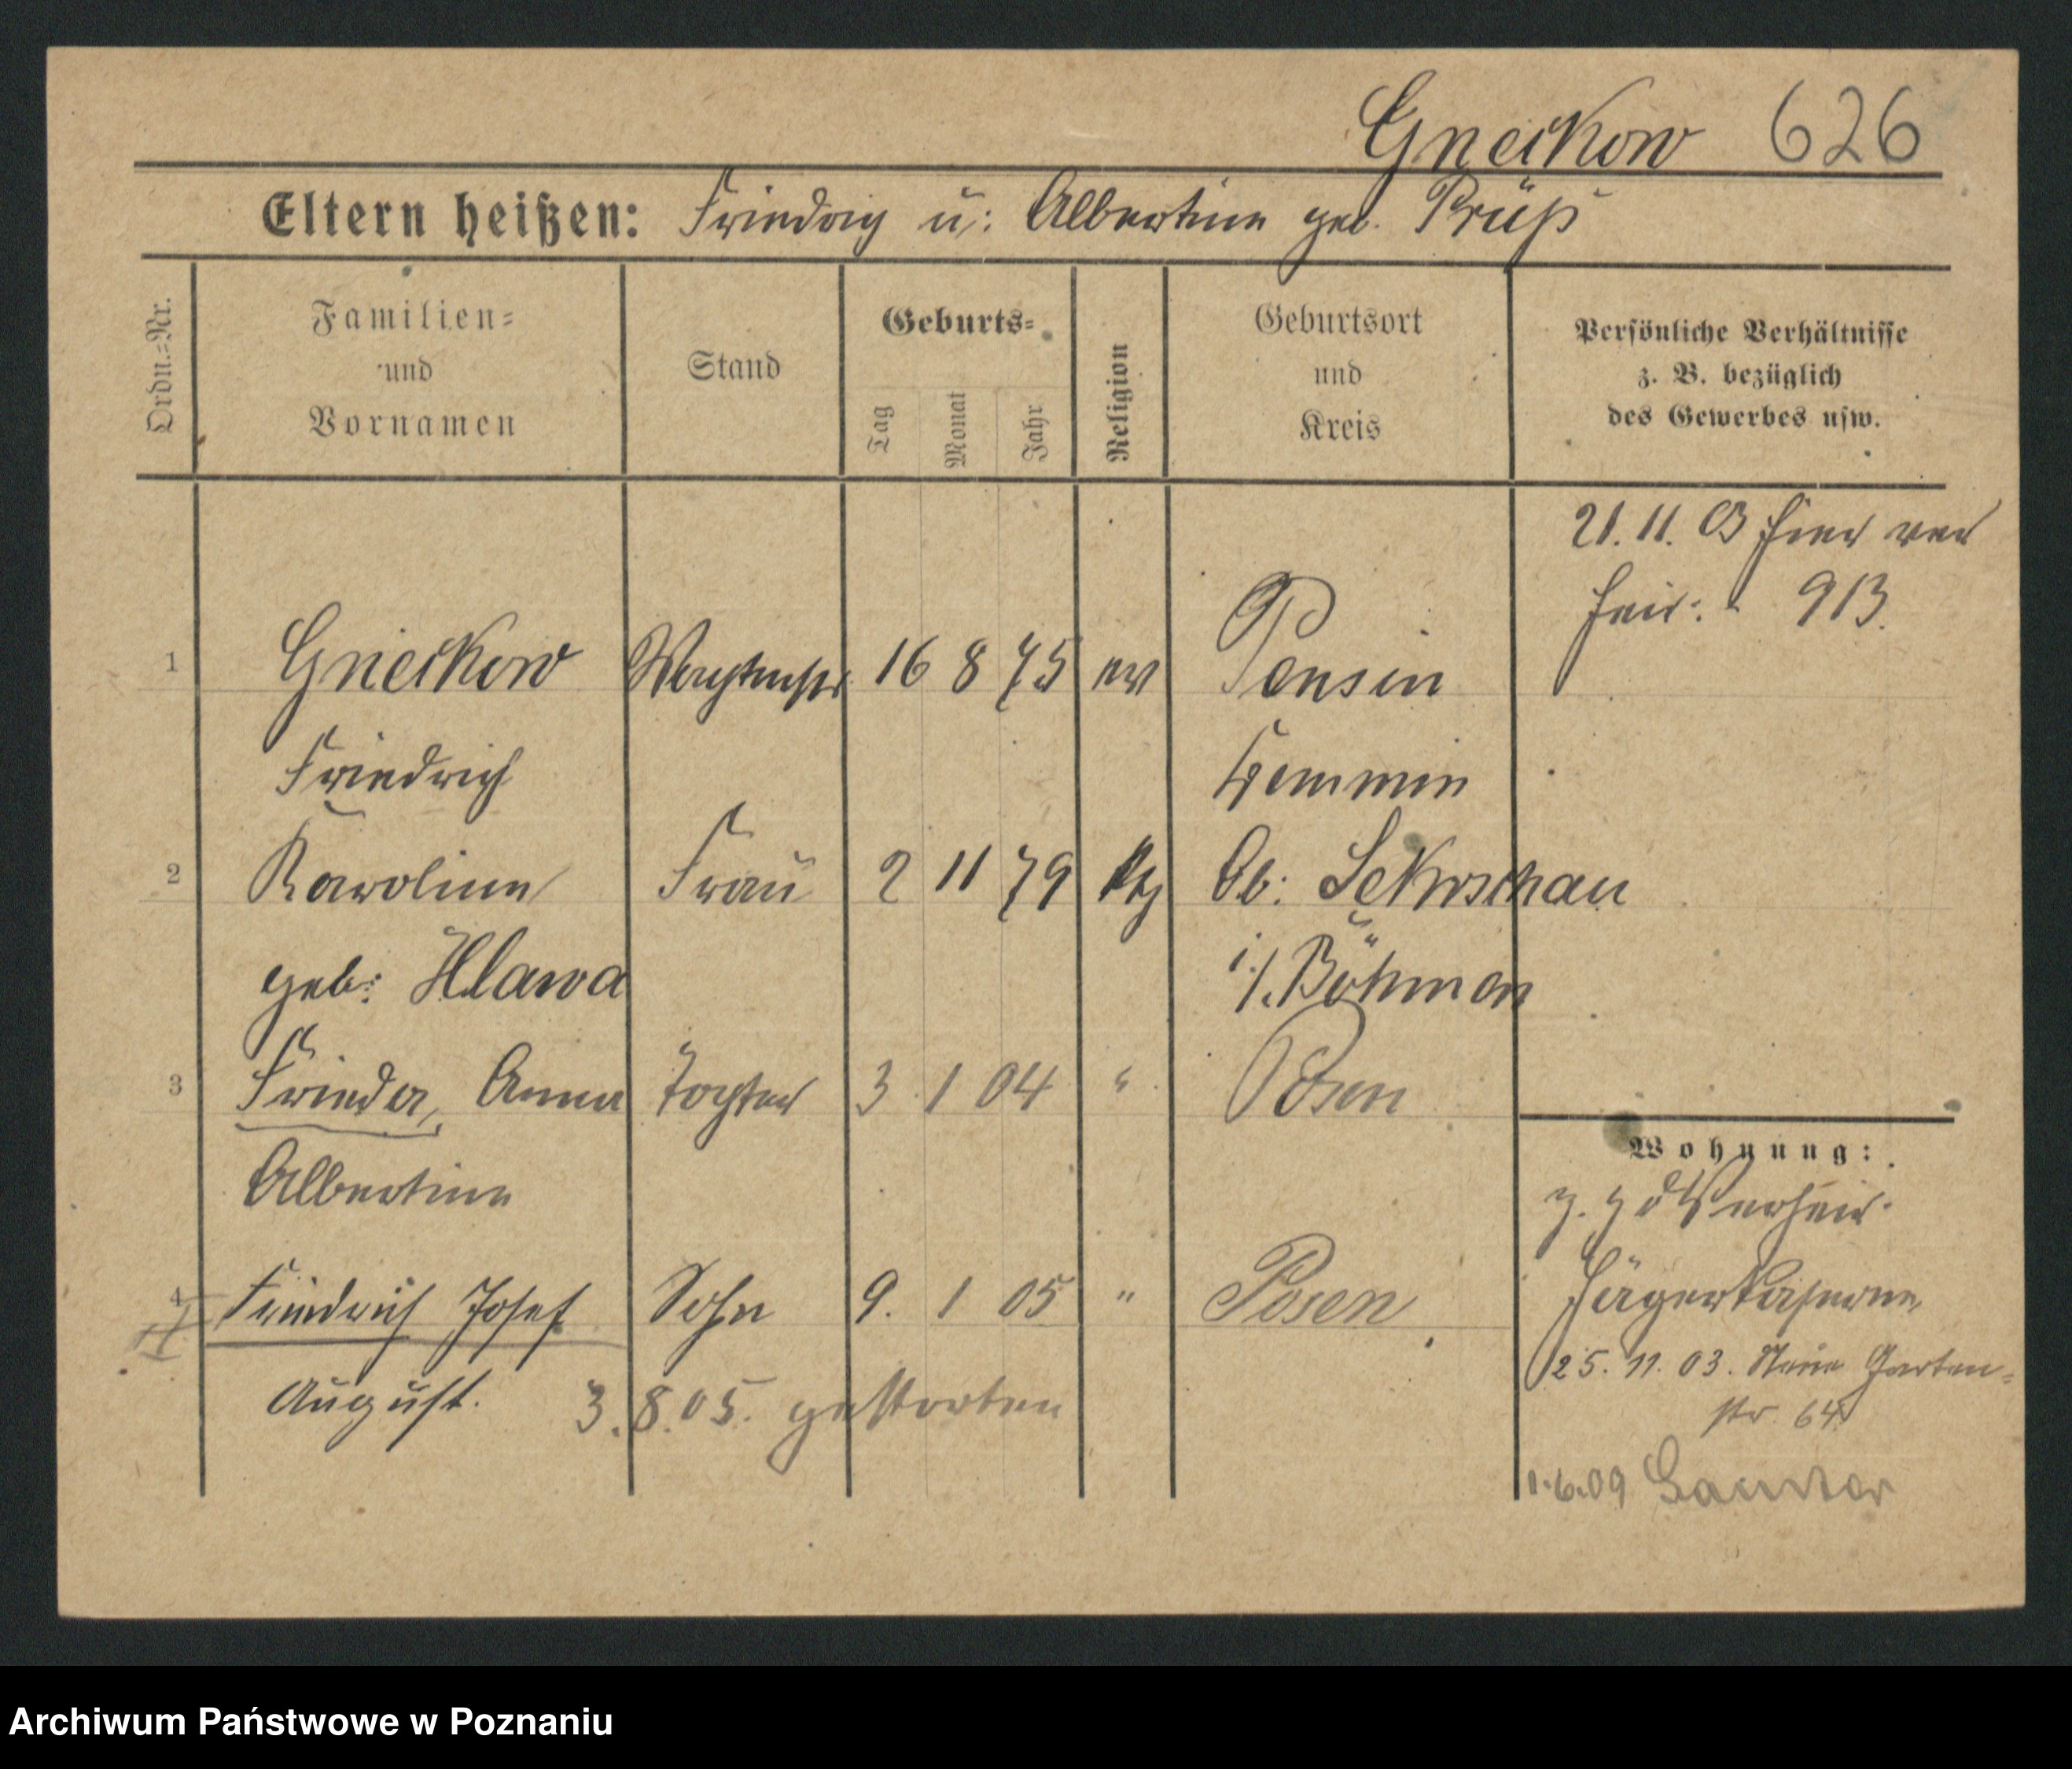 Gneikow 626
Eltern heißen: Friedrich u: Albertine geb. Prüß
Ordn.-Nr.
Familien-
und
Vornamen
Stand
Geburts-
Tag
Monat
Jahr
Religion
Geburtsort
und
Kreis
Persönliche Verhältnisse
z. B. bezüglich
des Gewerbes usw.
21. 11. 03 hier ver
heir: 913.
1 Gneikow Wachtmstr 16 8 75 ev Pensin
Friedrich Demmin
2 Karoline Frau 2 11 79 kth Ob: Sekrschau
geb: Hlawa i/. Böhmen
3 Frieda, Anna Tochter 3 1 04 " Posen
Albertine
Wohnung:
z. Z. d Verheir.
Jägerkaserne
4 Friedrich Josef Sohn 9. 1 05 " Posen
25. 11. 03. Neue Garten-
str 64
August. 3. 8. 05. gestorben
1.6.09
Archiwum Państwowe w Poznaniu